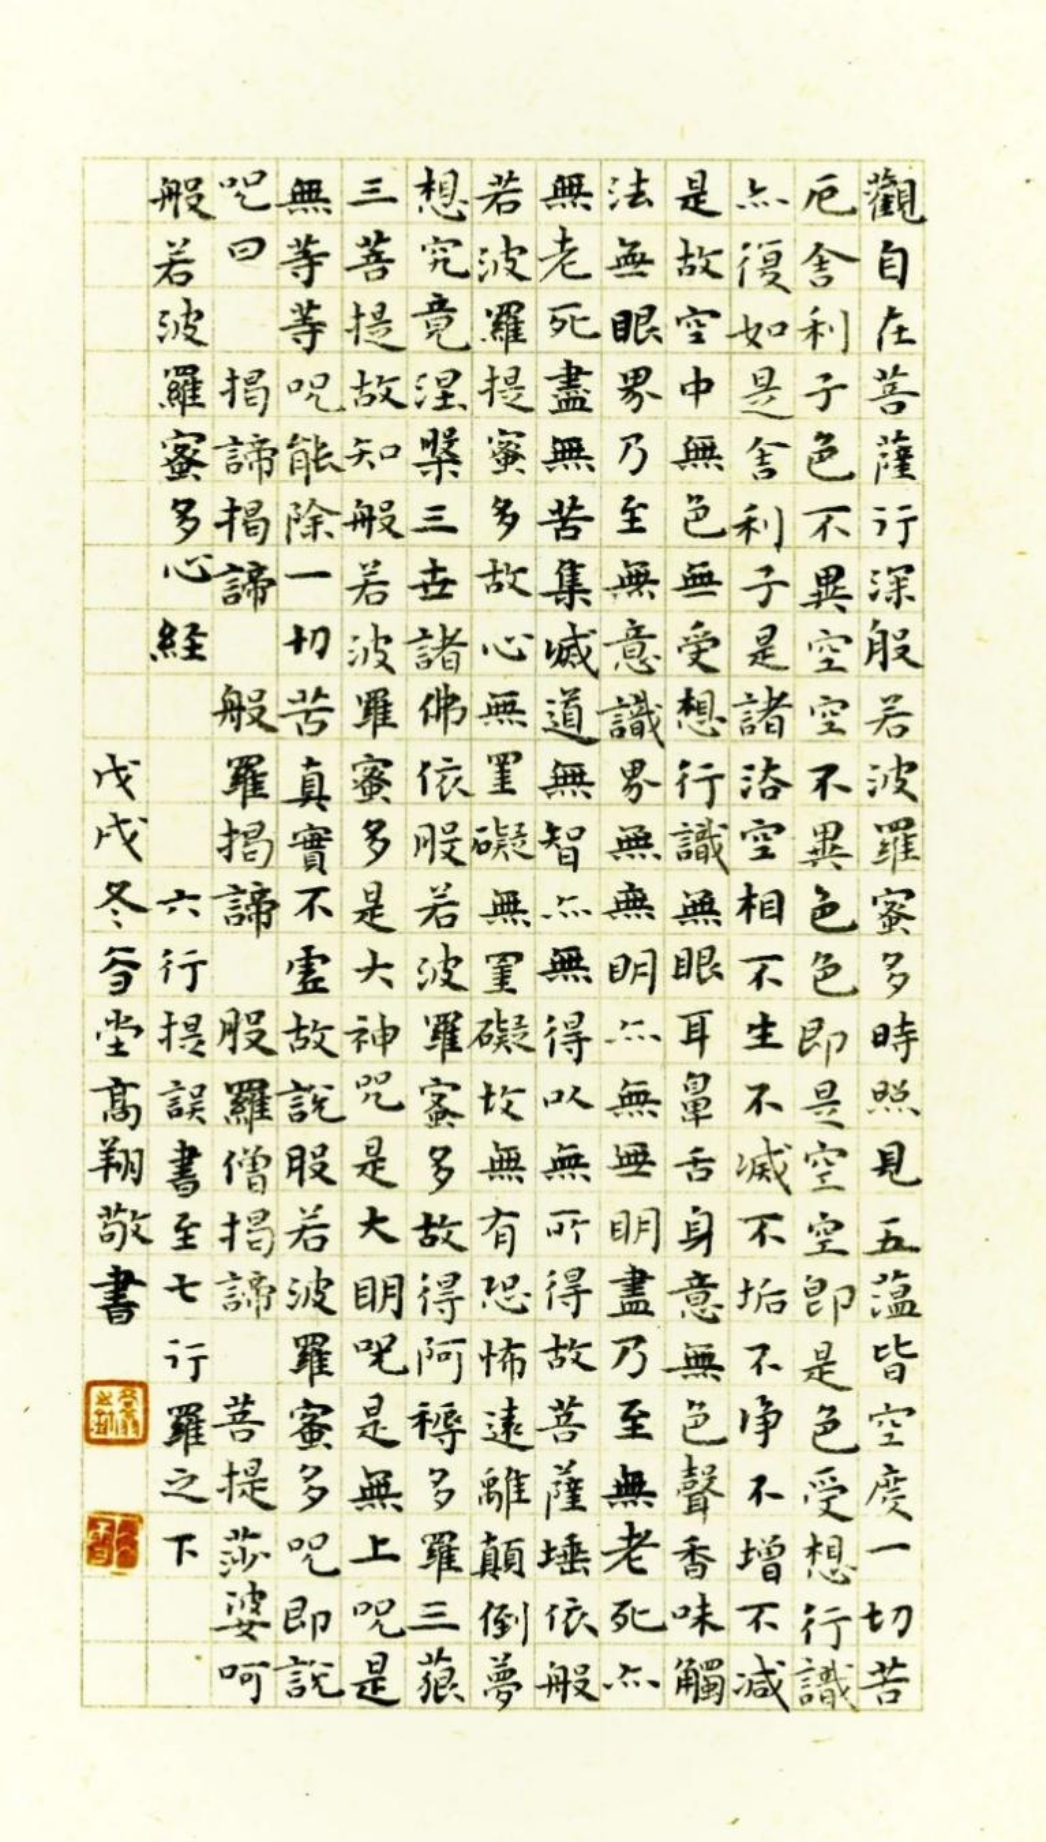 觀自在菩薩行深般若波羅蜜多時照見五蕰皆空度一切苦
厄舍利子色不異空空不異色色即是空空即是色受想行識
亦復如是舍利子是諸法空相不生不滅不垢不净不增不減
是故空中無色無受想行識無眼耳鼻舌身意無色聲香味觸
法無眼界乃至無意識界無無明亦無無明盡乃至無老死亦
無老死盡無苦集滅道無智亦無得以無所得故菩薩埵依般
若波羅提蜜多故心無罣礙無罣礙故無有恐怖遠離顛倒夢
想究竟涅槃三世諸佛依般若波羅蜜多故得阿耨多羅三藐
三菩提故知般若波羅蜜多是大神咒是大明咒是無上咒是
無等等咒能除一切苦真實不虛故說般若波羅蜜多咒即說
咒曰 揭諦揭諦 般羅揭諦 般羅僧揭諦 菩提莎婆呵
般若波羅蜜多心経 六行提誤書至七行羅之下
戊戌冬 堂高翔敬書